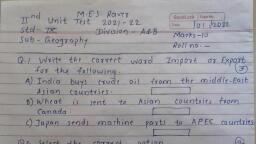 M.E.S Ravet
IInd Unit Test 2021-22
Std- IX Division - A&B Marks-10
Sub- Geography Roll no-
Q.1 Write the correct word Import or Export
for the following.
A) India buys crude oil from the middle-East
Asian countries-
B) Wheat is sent to Asian countries from
Canada
C) Japan sends machine parts to APEC countries
Q.2 Select the correct option